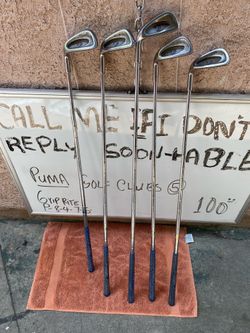 CALL ME IF I DON'T
REPLY SOON-ABLE
PUMA GOLF CLUBS (5)
100"